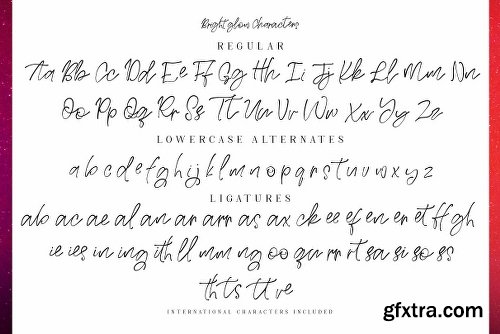 Brightglow Characters
REGULAR
Aa Bb Cc Dd Ee Ff Gg Hh Ii Jj Kk Ll Mm Nn
Oo Pp Qq Rr Ss Tt Uu Vv Ww Xx Yy Zz
LOWERCASE ALTERNATES
a b c d e f g h i j k l m n o p q r s t u v w x y z
LIGATURES
ab ac ae al an ar arr as ax ck ee ef en er et ff gh
ie ies in ing ith ll mm ng oo qu rr rt sa si so ss
th ts tt ve
INTERNATIONAL CHARACTERS INCLUDED
gfxtra.com